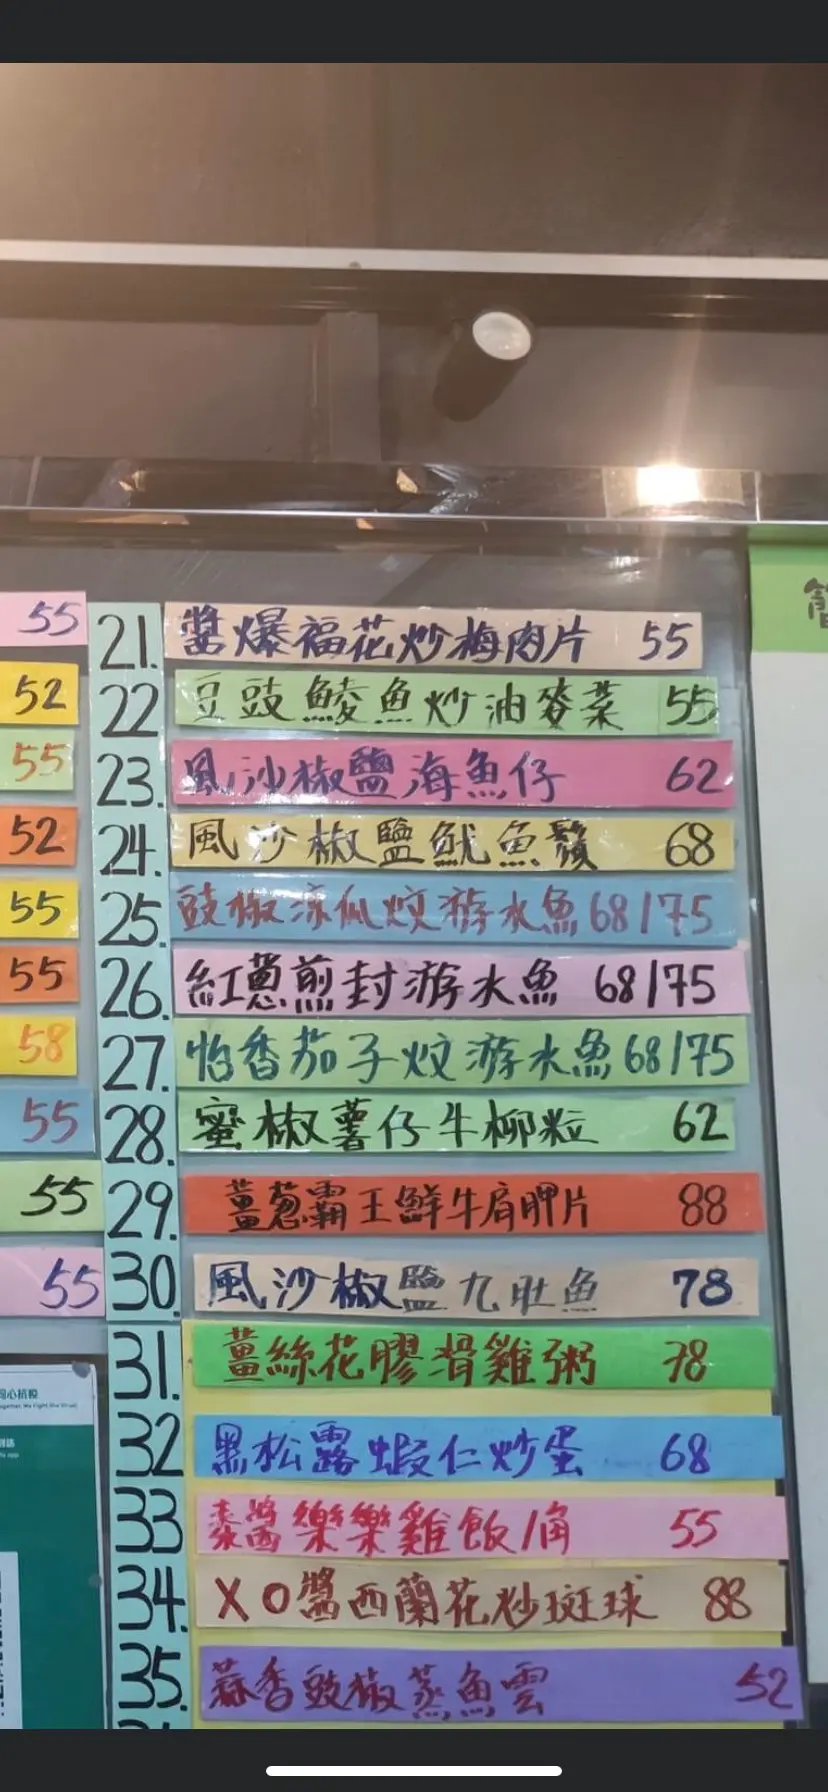 55
52
55
52
55
55
58
55
55
55
21. 醬爆福花炒梅肉片 55
22 豆豉鯪魚炒油麥菜 55
23. 風沙椒鹽海魚仔 62
24. 風沙椒鹽魷魚鬚 68
25. 豉椒涼瓜炆游水魚 68/75
26. 紅蔥煎封游水魚 68/75
27. 怡香茄子炆游水魚 68/75
28. 蜜椒薯仔牛柳粒 62
29. 薑蔥霸王鮮牛肩胛片 88
30. 風沙椒鹽九肚魚 78
31. 薑絲花膠滑雞粥 78
32 黑松露蝦仁炒蛋 68
33 泰醬樂樂雞飯/角 55
34. XO醬西蘭花炒斑球 88
35. 蒜香豉椒蒸魚雲 52
同心抗疫
Together, We Fight the Virus!